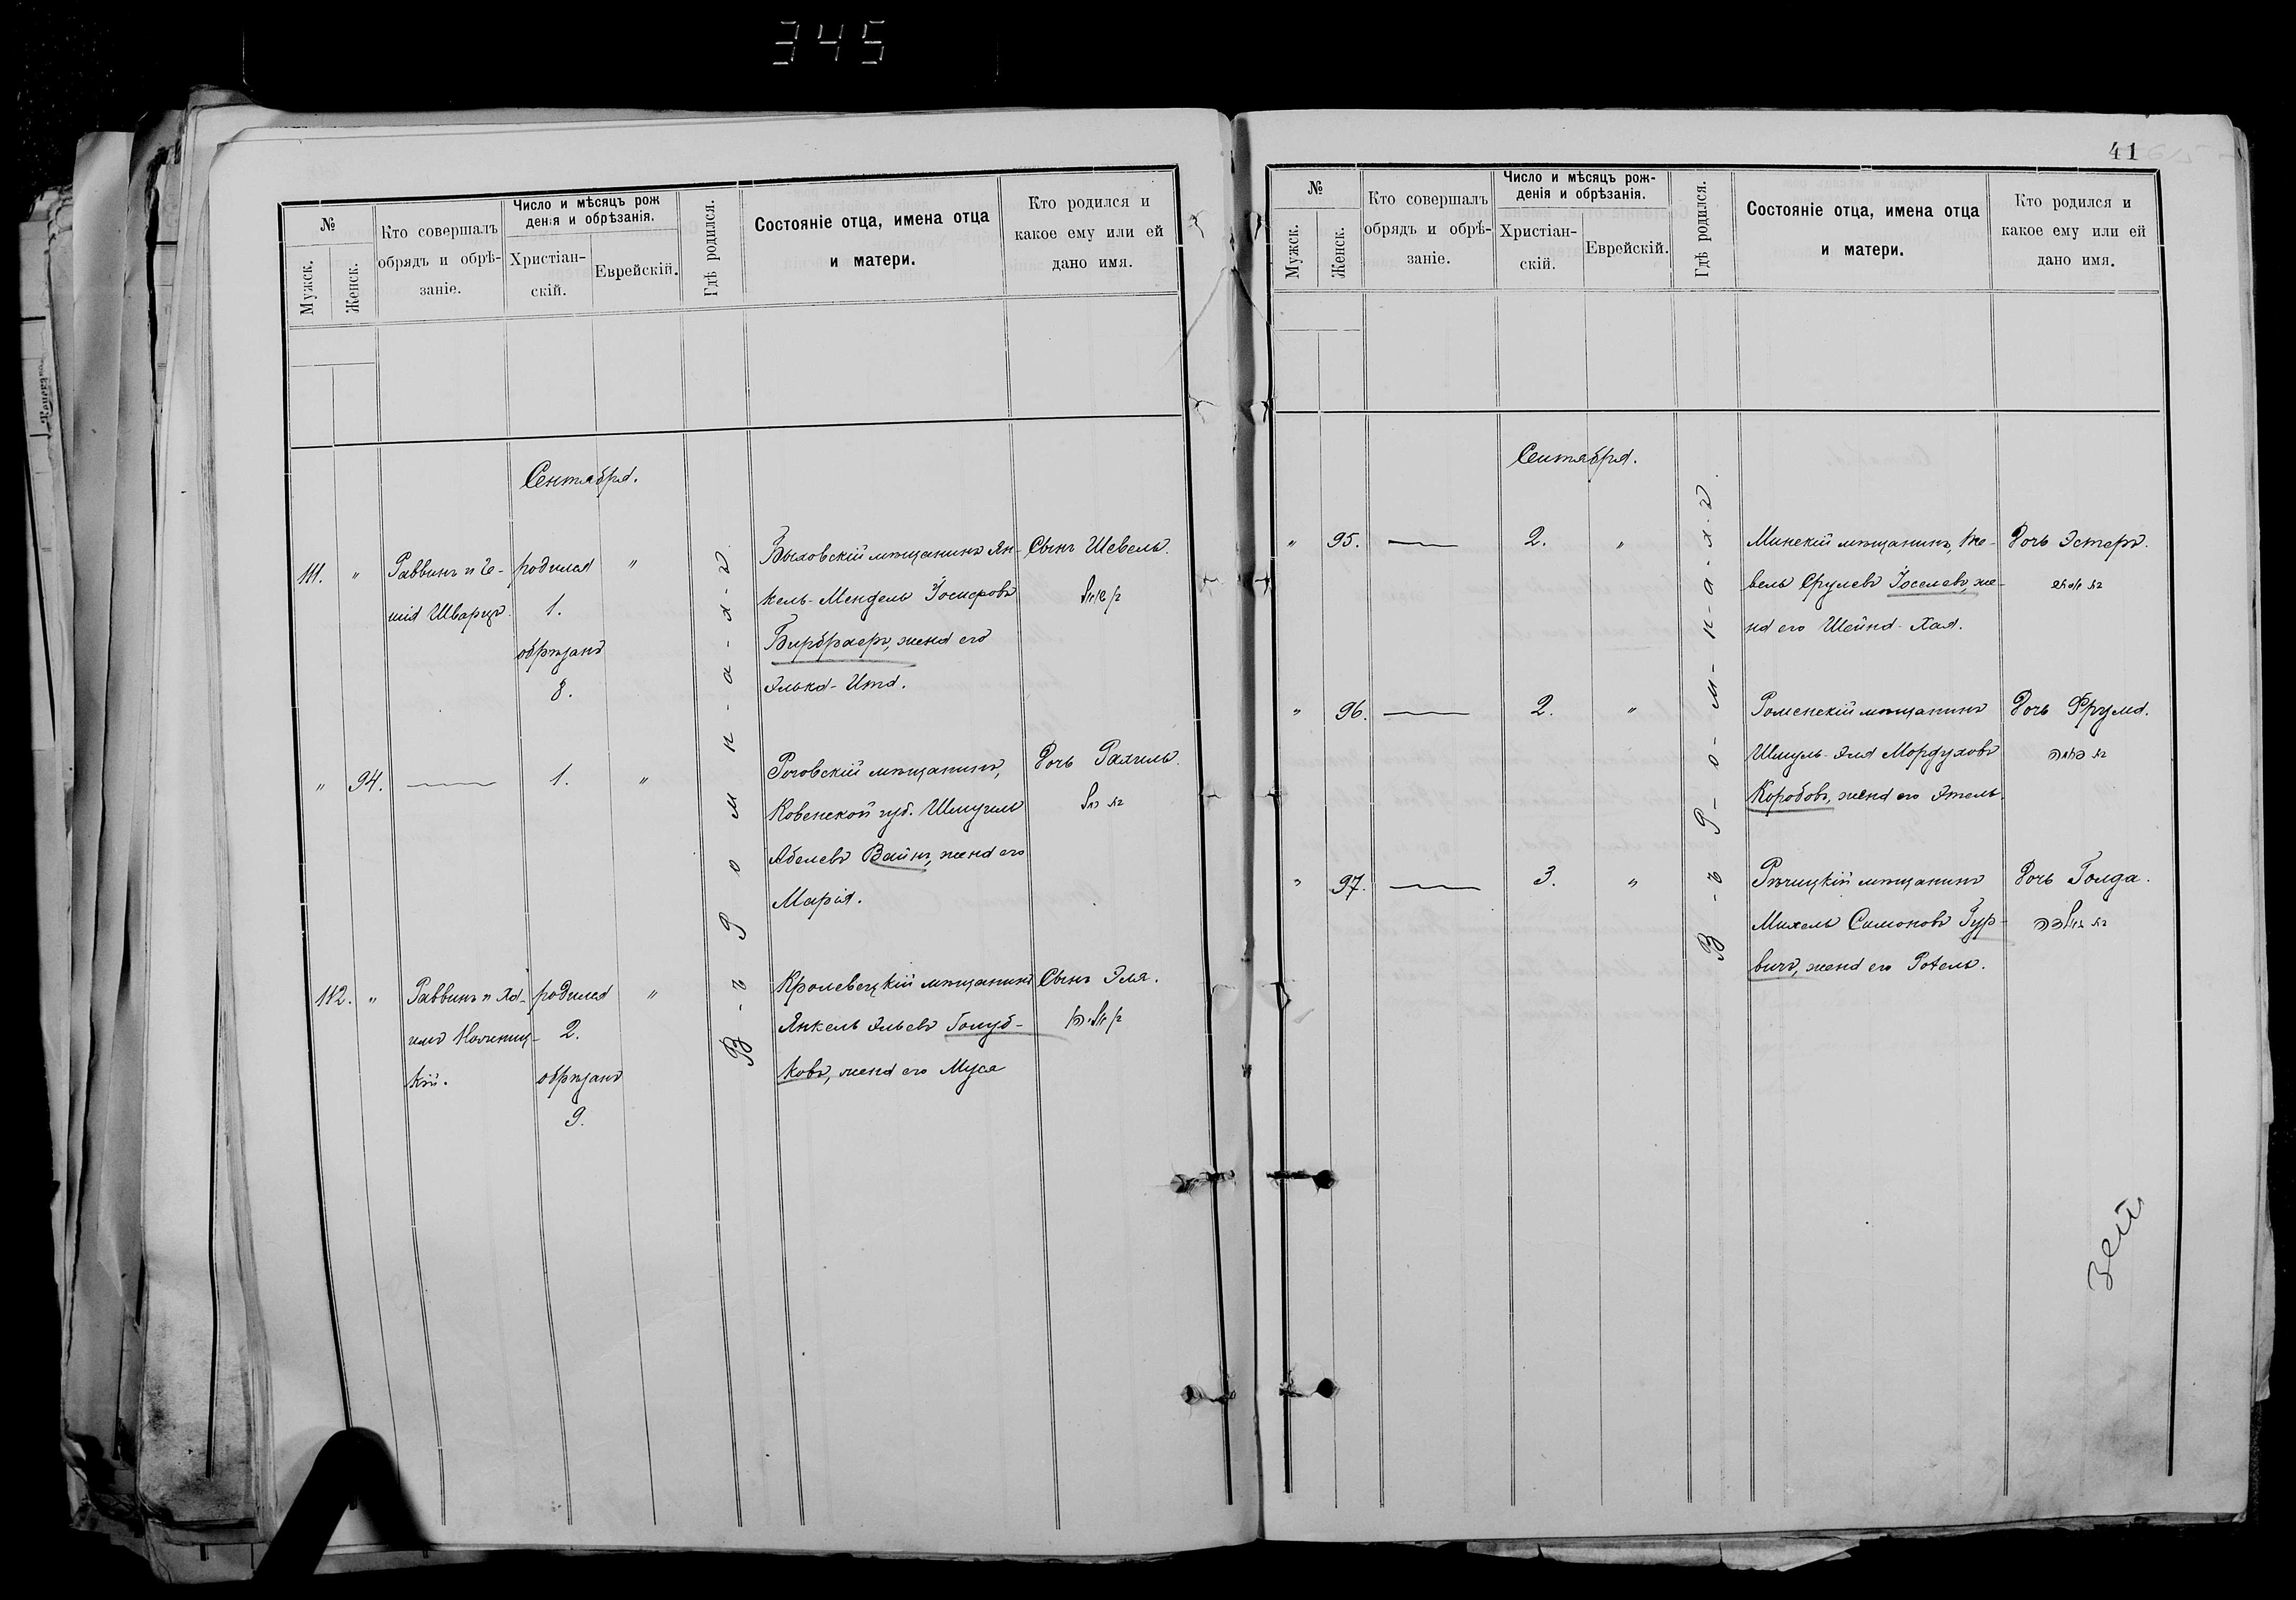 345
№
Мужск.
Женск.
Кто совершалъ
обрядъ и обрѣ-
заніе.
Число и мѣсяцъ рож
денія и обрѣзанія.
Христіан-
скій.
Еврейскій.
Гдѣ родился.
Состояніе отца, имена отца
и матери.
Кто родился и
какое ему или ей
дано имя.
Сентября.
111.
"
Раввинъ и Ге-
ція Шварцъ.
родился
1.
обрѣзанъ
8.
"
Быховскій мѣщанинъ Ян-
кель-Мендель Іосифовъ
Бирбраеръ, жена его
Элька-Ита.
Сынъ Шевель.
"
94.
1.
"
Роговскій мѣщанинъ,
Ковенской губ. Шмуилъ
Абелевъ Вайнъ, жена его
Марія.
Дочь Рахиль.
112.
"
Раввинъ и Ха-
кій.
родился
2.
обрѣзанъ
9.
"
Кролевецкій мѣщанинъ
Янкель Эльевъ Голуб-
ковъ, жена его Муся
Сынъ Эля.
Въ Ромнахъ
41
№
Мужск.
Женск.
Кто совершалъ
обрядъ и обрѣ-
заніе.
Число и мѣсяцъ рож-
денія и обрѣзанія.
Христіан-
скій.
Еврейскій.
Гдѣ родился.
Состояніе отца, имена отца
и матери.
Кто родился и
какое ему или ей
дано имя.
Сентября.
"
95.
2.
"
Минскій мѣщанинъ, Ле-
вель Срулевъ Іоселевъ, же-
на его Шейна-Хая.
Дочь Эстеръ.
"
96.
2.
"
Роменскій мѣщанинъ
Шмуль-Эля Мордуховъ
Коробовъ, жена его Этель.
Дочь Фрума.
"
97.
3.
"
Рѣчицкій мѣщанинъ
Михель Симоновъ Гур-
вичъ, жена его Ротель.
Дочь Голда.
зей